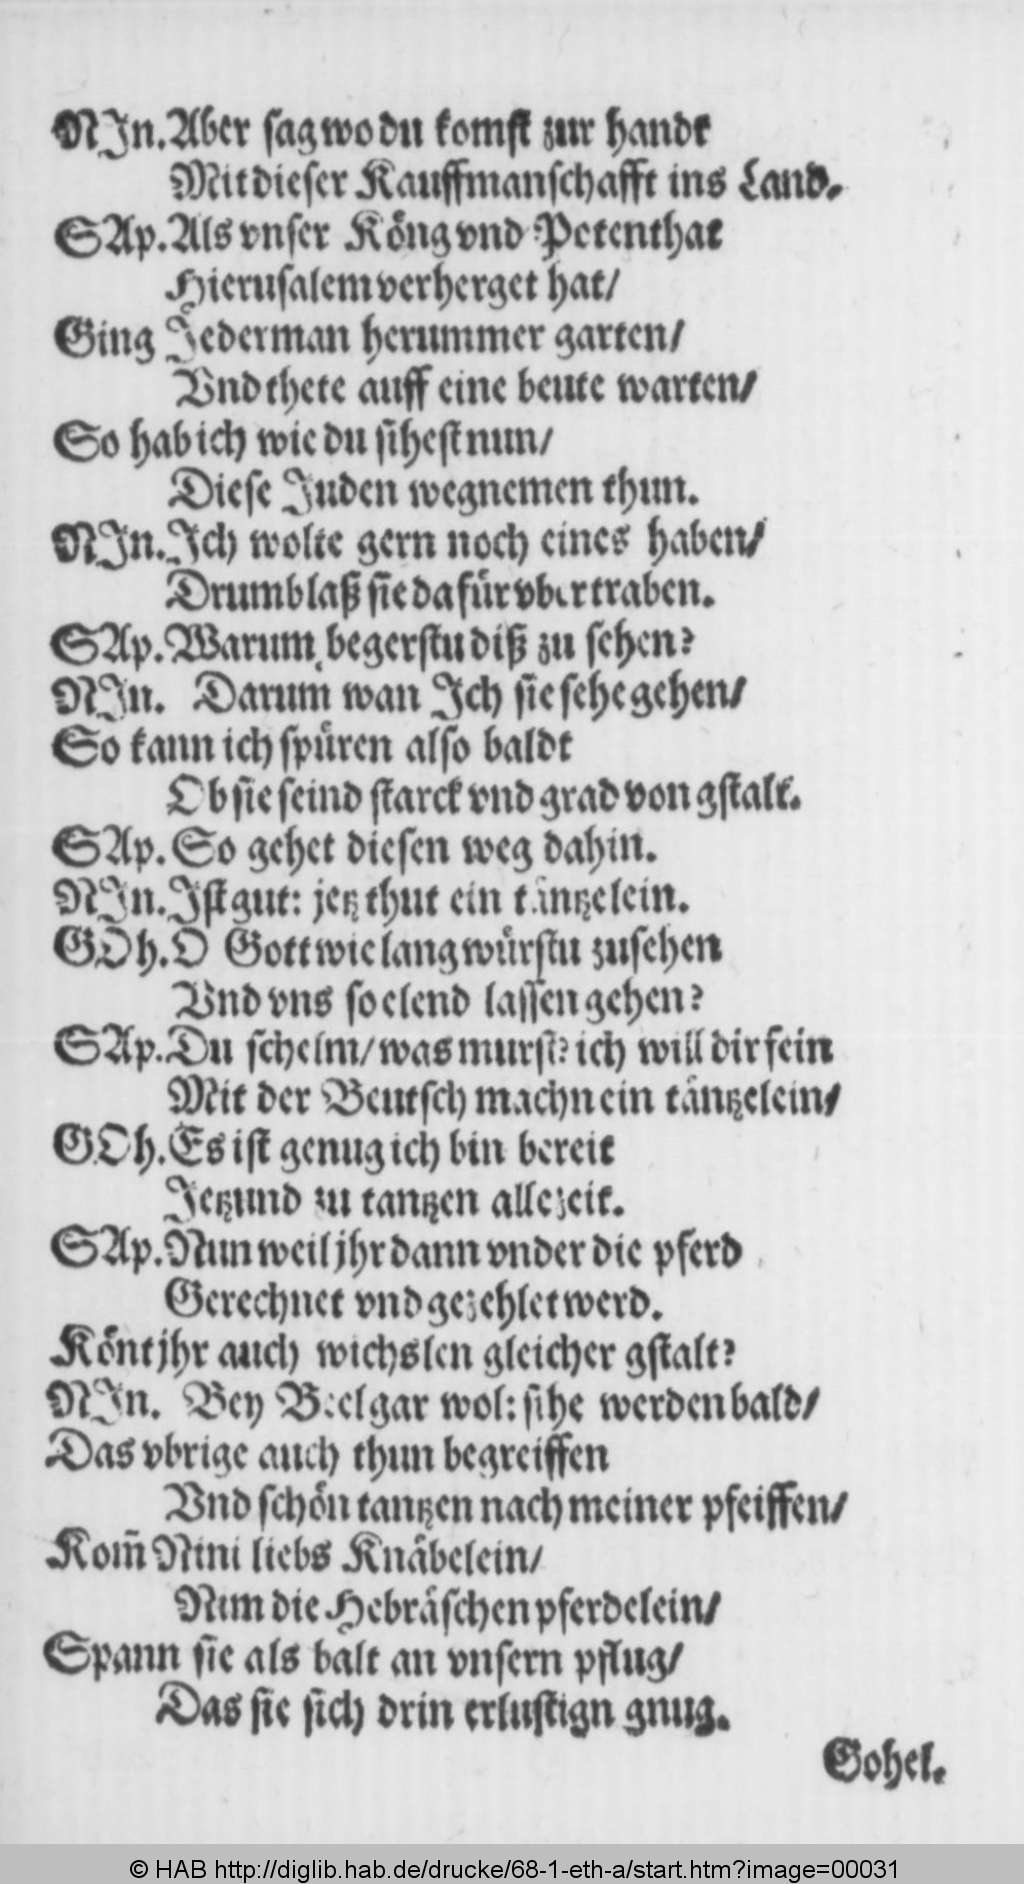 NIn. Aber sag wo du komst zur handt
Mit dieser Kauffmanschafft ins Land.
SAp. Als vnser Köng vnd Potenthat
Hierusalem verherget hat/
Ging Jederman herummer garten/
Vnd thete auff eine beute warten/
So hab ich wie du sihest nun/
Diese Juden wegnemen thun.
NIn. Ich wolte gern noch eines haben/
Drumb laß sie da fürvber traben.
SAp. Warum begerstu diß zu sehen?
NIn. Darum wan Ich sie sehe gehen/
So kann ich spüren also baldt
Ob sie seind starck vnd grad von gstalt.
SAp. So gehet diesen weg dahin.
NIn. Ist gut: jetz thut ein täntzelein.
GOh. O Gott wie lang würstu zusehen
Vnd vns so elend lassen gehen?
SAp. Du schelm/ was murst? ich will dir fein
Mit der Beutsch machn ein täntzelein/
GOh. Es ist genug ich bin bereit
Jetzund zu tantzen alle zeit.
SAp. Nun weil jhr dann vnder die pferd
Gerechnet vnd gezehlet werd.
Könt jhr auch wichslen gleicher gstalt?
NIn. Bey Beelgar wol: sihe werden bald/
Das vbrige auch thun begreiffen
Vnd schön tantzen nach meiner pfeiffen/
Kom̃ Nini liebs Knäbelein/
Nim die Hebräschen pferdelein/
Spann sie als balt an vnsern pflug/
Das sie sich drin erlustign gnug.
Gohel.
© HAB http://diglib.hab.de/drucke/68-1-eth-a/start.htm?image=00031